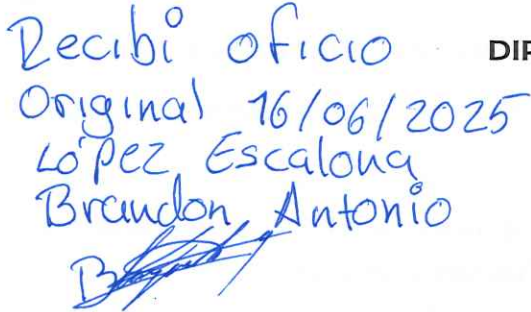 Recibi oficio
DIP
Original 16/06/2025
López Escalona
Brandon Antonio